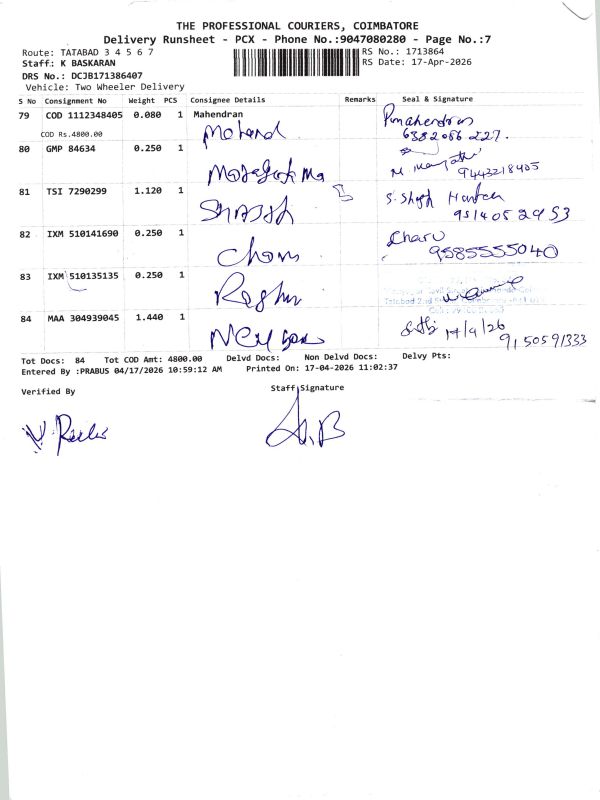 THE PROFESSIONAL COURIERS, COIMBATORE
Delivery Runsheet - PCX - Phone No.:9047080280 - Page No.:7
Route: TATABAD 3 4 5 6 7
RS No.: 1713864
Staff: K BASKARAN
RS Date: 17-Apr-2026
DRS No.: DCJB171386407
Vehicle: Two Wheeler Delivery
S No Consignment No Weight PCS Consignee Details Remarks Seal & Signature
79 COD 1112348405 0.080 1 Mahendran
COD Rs.4800.00
P. mahendran
6382086227.
80 GMP 84634 0.250 1
9443218405
81 TSI 7290299 1.120 1
9514052953
82 IXM 510141690 0.250 1
Charu
9585555040
83 IXM 510135135 0.250 1 Raghu
84 MAA 304939045 1.440 1
17/4/26
9150591333
Tot Docs: 84 Tot COD Amt: 4800.00 Delvd Docs: Non Delvd Docs: Delvy Pts:
Entered By :PRABUS 04/17/2026 10:59:12 AM Printed On: 17-04-2026 11:02:37
Verified By Staff Signature